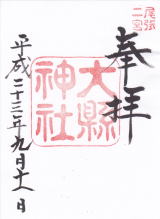 尾張
二宮
奉拝
大縣
神社
平成二十三年九月十八日